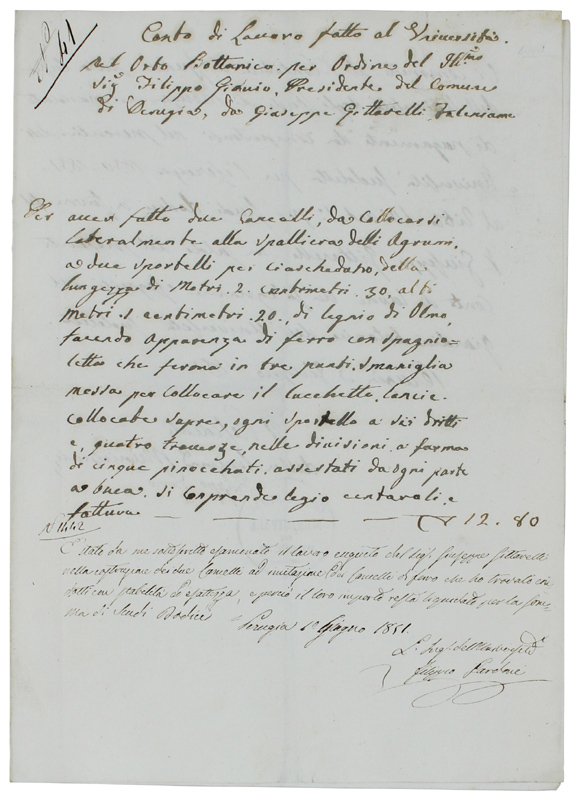 N° 41
Conto di Lavoro fatto al Università.
Nel Orto Bottanico. per Ordine del Ill.mo
Sig.r Filippo Presidente del Comune
di Perugia, da Giuseppe Gittarelli
Per auer fatto due Cancelli, da Collocarsi
Lateralmente alla spalliera delli Agrumi,
a due sportelli per ciaschedu della
lungezza di Metri. 2. Centimetri. 30. alti
Metri. 1 centimetri. 20. di legnio di Olmo,
facendo Apparenza di ferro con spagnio=
letta che ferma in tre punti. smaniglia
messa per Collocare il Lucchetto. lancie.
Collocate sopra, ogni sportello a sei dritti
e, quattro traverze, nelle divisioni. a forma
di cinque pinocchiati. assestati da ogni parte
a buca. si Conprende legio e
fattura 12. 80
N° 1442
È stato da me sottoscritto esaminato il lavoro eseguito dal Sig. Giuseppe Gittarelli
nella costruzione dei due Cancelli ad imitazione di Cancelli di ferro che ho trovati
fatti con stabilità ed esattezza, e perciò il loro importo resta liquidato per la Som=
ma di Scudi Dodici
Perugia 1° Giugno 1851.
Filippo